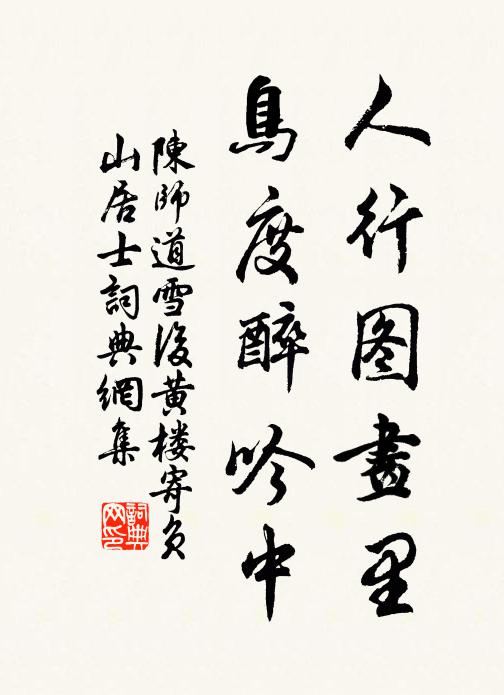 人行图畫里
鳥度醉吟中
陳師道雪後黄楼寄负
山居士詞典網集
詞典网印